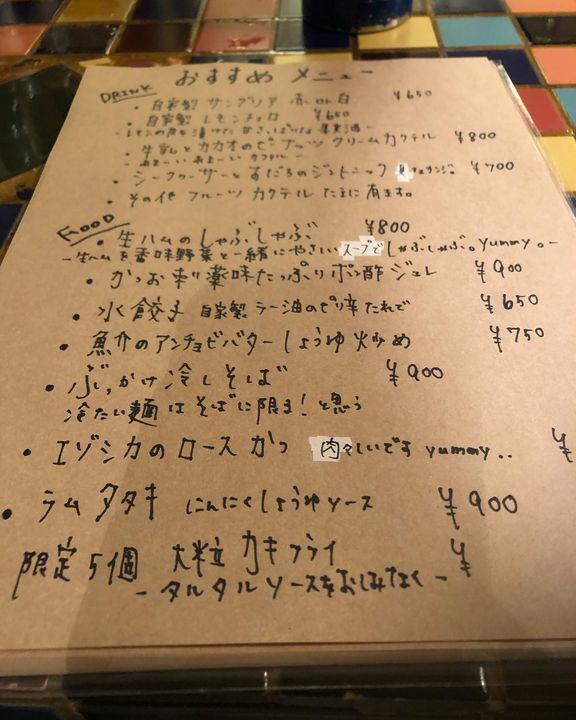 おすすめ メニュー
DRINK
・自家製 サングリア 赤 or 白 ¥650
・自家製 レモンチェロ ¥650
・牛乳とカカオのピーナッツクリームカクテル ¥800
・シークヮーサーとすだちのジントニック ¥700
・その他 フルーツ カクテル たまに有ます。
FOOD
・生ハムの しゃぶしゃぶ ¥800
-生ハムを香味野菜と一緒にやさしいスープでしゃぶしゃぶ。yummy。-
・かつお刺 薬味たっぷりポン酢ジュレ ¥900
・水餃子 自家製 ラー油のピリ辛たれで ¥650
・魚介のアンチョビバターしょうゆ炒め ¥750
・ぶっかけ冷しそば ¥900
冷たい麺はそばに限る！と思う
・エゾシカのロースかつ 肉々しいです yummy.. ¥
・ラムタタキ にんにくしょうゆソース ¥900
限定5個 大粒カキフライ ¥
-タルタルソースをおしみなく-